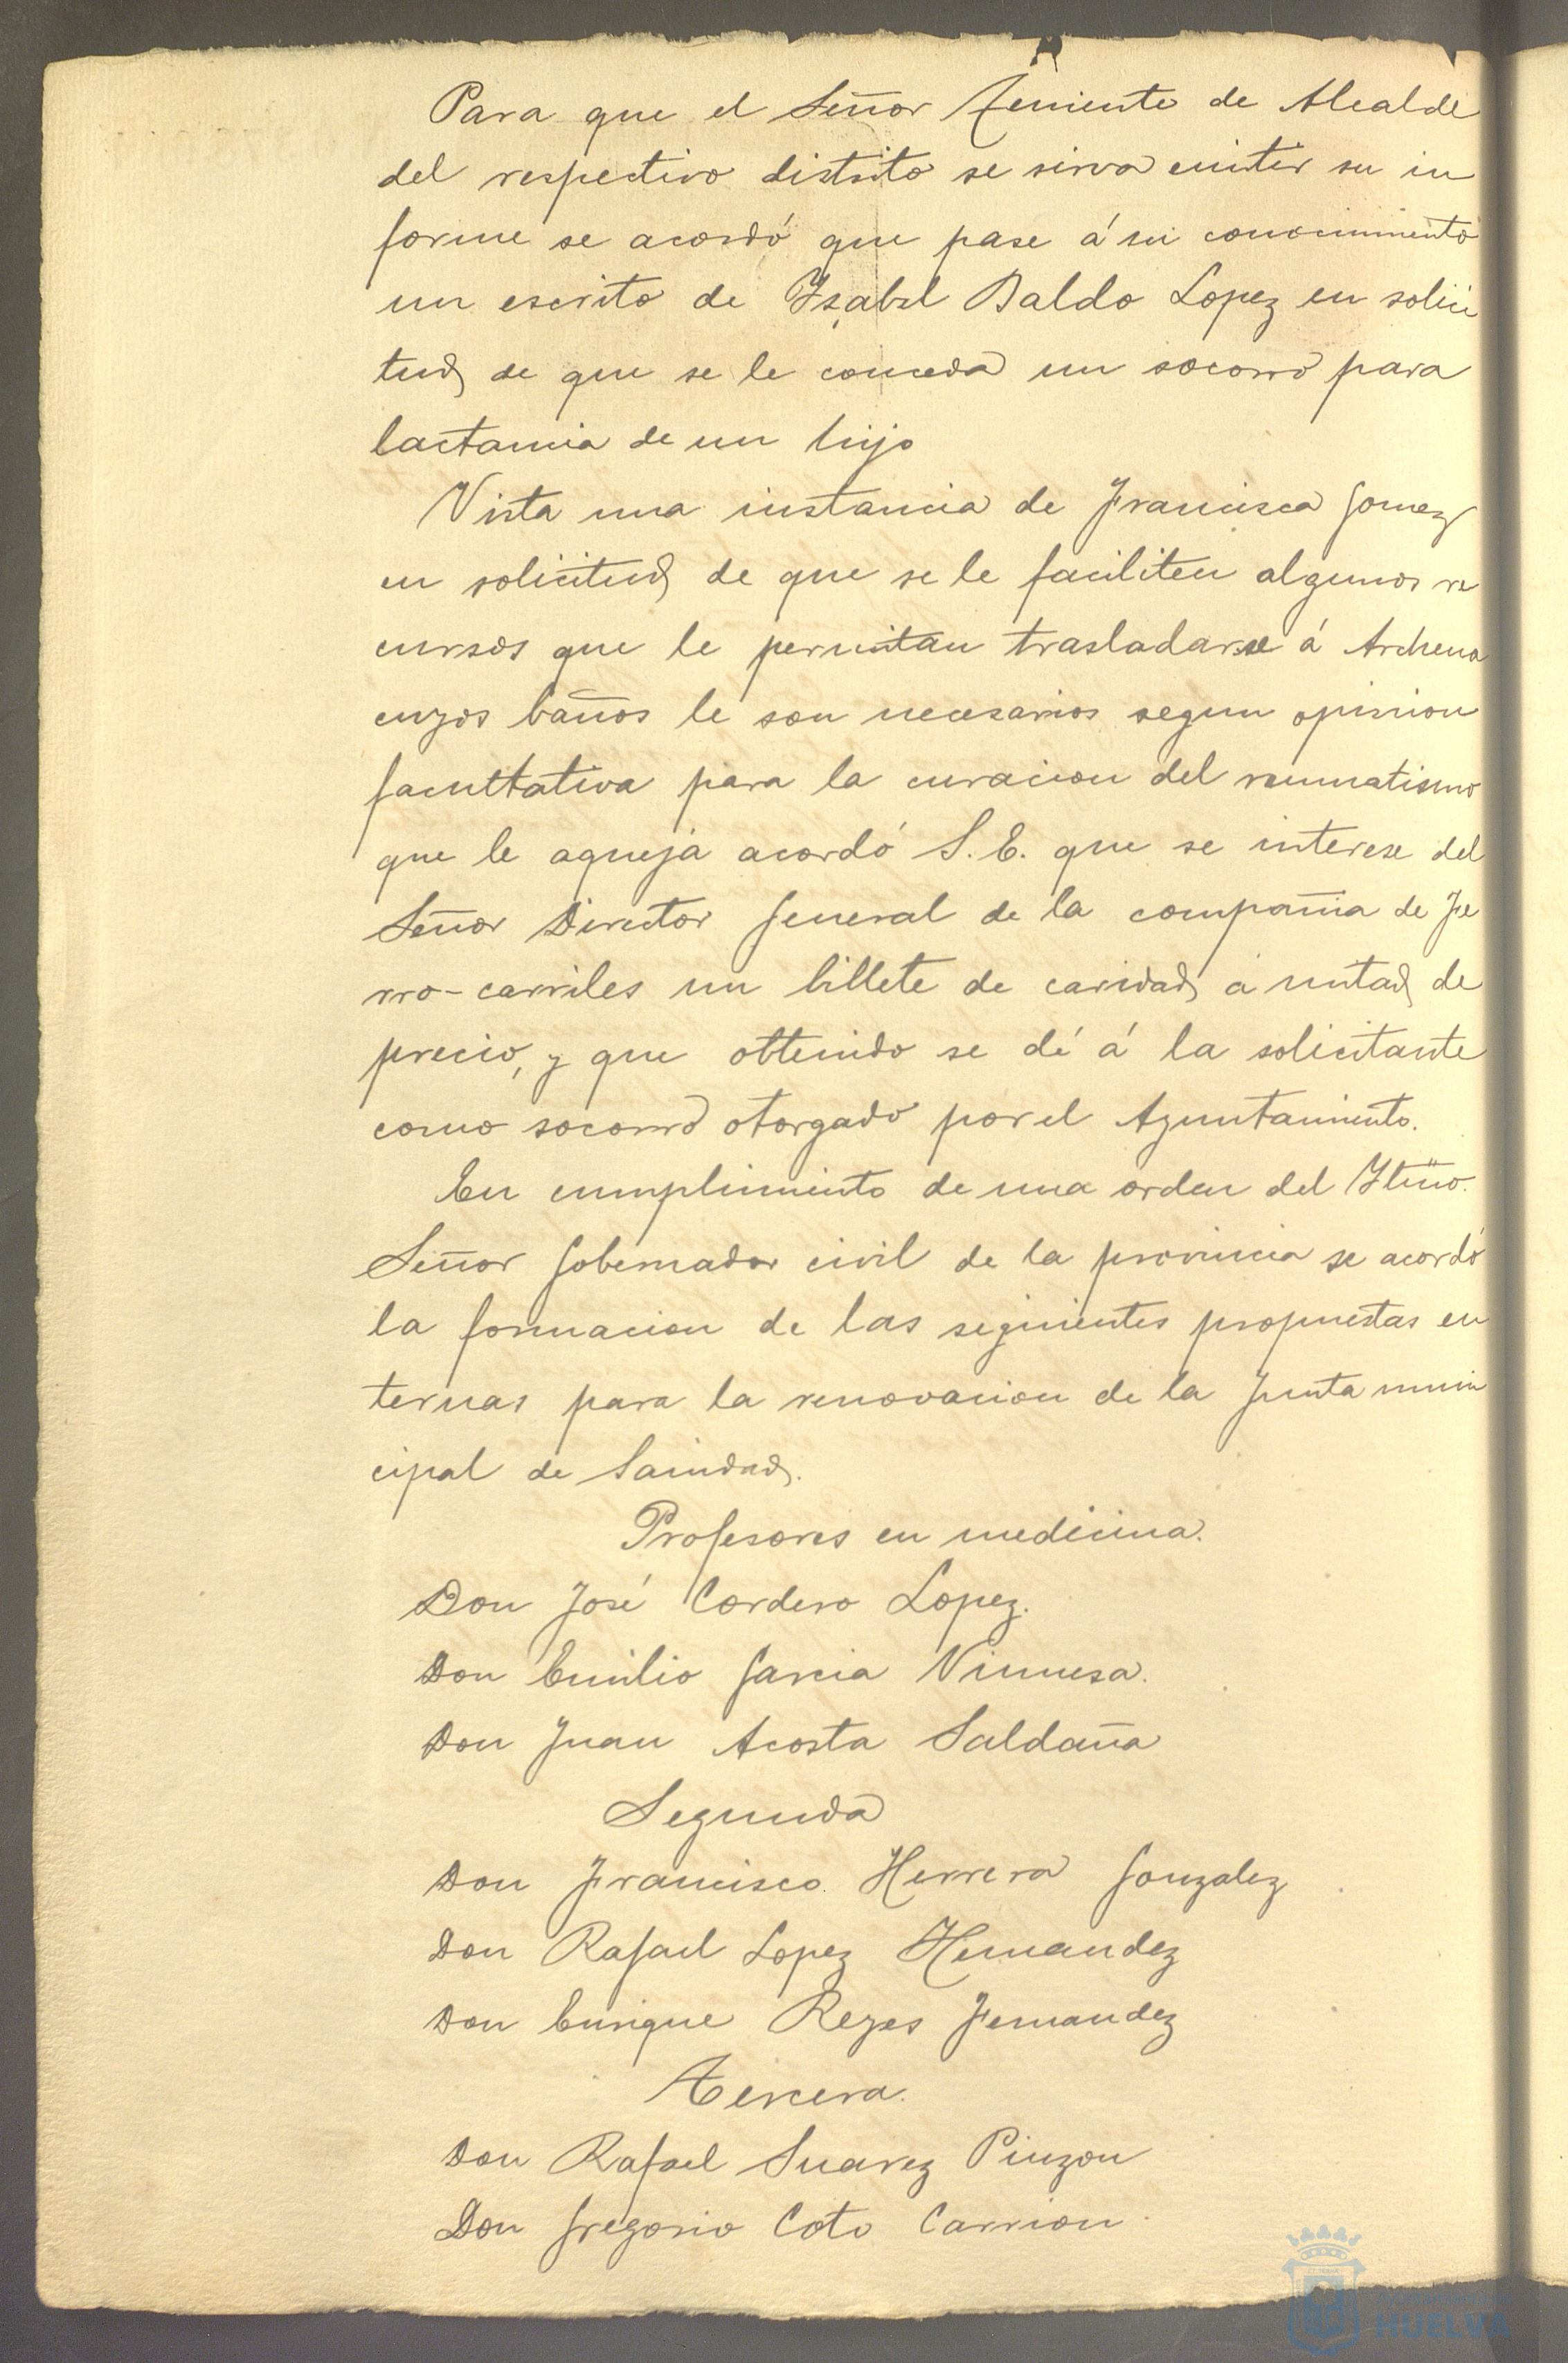 Para que el Señor Teniente de Alcalde
del respectivo distrito se sirva emitir su in
forme se acordó que pase á su conocimiento
un escrito de Ysabel Baldo Lopez en solici
tud de que se le conceda un socorro para
lactancia de un hijo
Vista una instancia de Francisca Gomez
en solicitud de que se le faciliten algunos re
cursos que le permitan trasladarse á Archena
cuyos baños le son necesarios segun opinion
facultativa para la curacion del reumatismo
que le aqueja acordó S.E. que se interese del
Señor Director General de la compañia de Fe
rro-carriles un billete de caridad á mitad de
precio, y que obtenido se dé á la solicitante
como socorro otorgado por el Ayuntamiento.
En cumplimiento de una orden del Yltmo.
Señor Gobernador civil de la provincia se acordó
la formacion de las siguientes propuestas en
ternas para la renovacion de la Junta muni
cipal de Sanidad.
Profesores en medicina.
Don José Cordero Lopez.
Don Emilio Garcia Vinuesa.
Don Juan Acosta Saldaña
Segunda
Don Francisco Herrera Gonzalez
Don Rafael Lopez Hernandez
Don Enrique Reyes Fernandez
Tercera.
Don Rafael Suarez Pinzon
Don Gregorio Coto Carrion
HUELVA